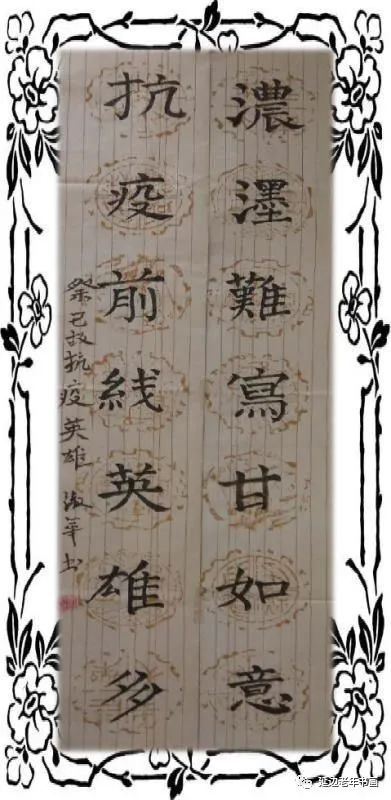 濃濹難寫甘如意
抗疫前綫英雄多
祭已故抗疫英雄 淑华书
延边老年书画